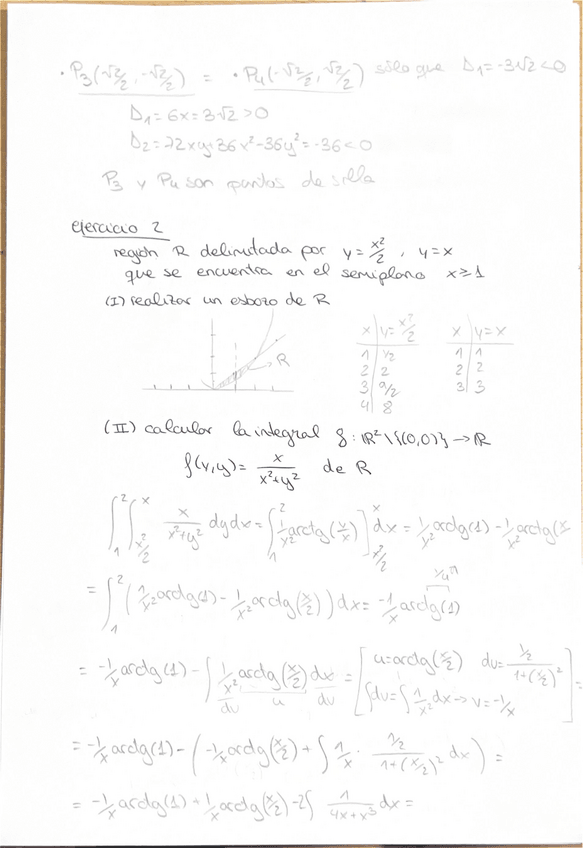 · P₃(√2/2, -√2/2) = · P₄(-√2/2, √2/2) sólo que Δ₁=-3√2<0
Δ₁=6x=3√2>0
Δ₂=72xy+36x²-36y²=-36<0
P₃ y P₄ son puntos de silla
ejercicio 2
región R delimitada por y=x²/2, y=x
que se encuentra en el semiplano x≥1
(I) realizar un esbozo de R
R
x | y=x²/2
1 | 1/2
2 | 2
3 | 9/2
4 | 8
x | y=x
1 | 1
2 | 2
3 | 3
(II) calcular la integral f: ℝ²\{(0,0)} → ℝ
f(x,y)= x/(x²+y²) de R
∫₁² ∫_{x²/2}^{x} x/(x²+y²) dydx = ∫₁² 1/x² arctg(y/x)]_{x²/2}^{x} dx = 1/x² arctg(1) - 1/x² arctg(x/
= ∫₁² (1/x² arctg(1) - 1/x² arctg(x/2)) dx = -1/x arctg(1)
1/4 π
= -1/x arctg(1) - ∫ 1/x² arctg(x/2) dx = [u=arctg(x/2) du= (1/2)/(1+(x/2)²)
dv u dv
∫dv=∫1/x² dx → v=-1/x] =
= -1/x arctg(1) - (-1/x arctg(x/2) + ∫ 1/x · (1/2)/(1+(x/2)²) dx) =
= -1/x arctg(1) + 1/x arctg(x/2) - 2∫ 1/(4x+x³) dx =